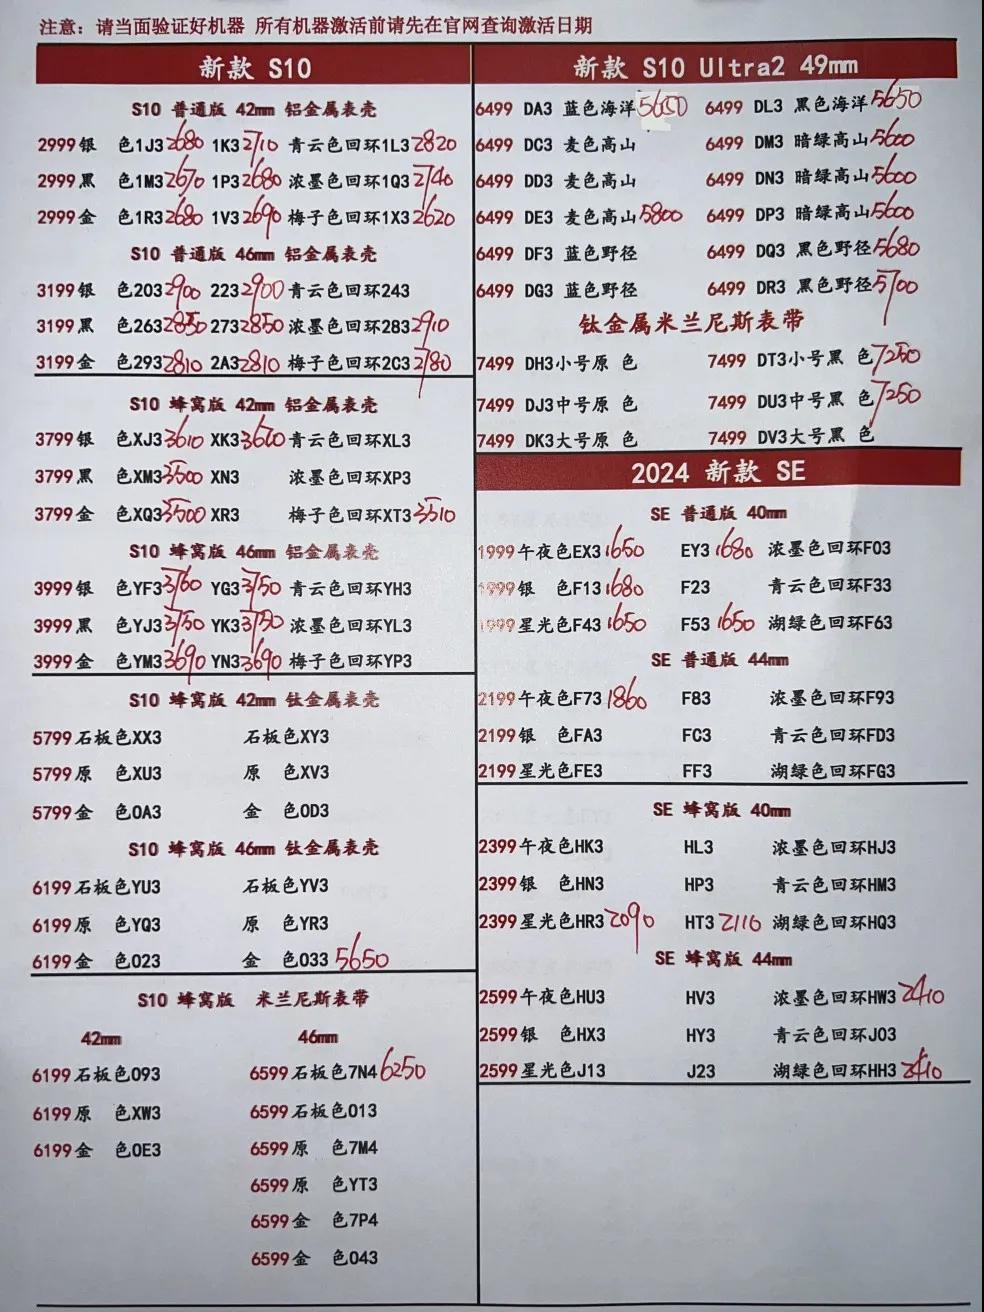 注意：请当面验证好机器 所有机器激活前请先在官网查询激活日期
新款 S10
S10 普通版 42mm 铝金属表壳
2999 银 色1J3 2680 1K3 2710 青云色回环1L3 2820
2999 黑 色1M3 2670 1P3 2680 浓墨色回环1Q3 2740
2999 金 色1R3 2680 1V3 2690 梅子色回环1X3 2620
S10 普通版 46mm 铝金属表壳
3199 银 色203 2900 223 2900 青云色回环243
3199 黑 色263 2850 273 2850 浓墨色回环283 2910
3199 金 色293 2810 2A3 2810 梅子色回环2C3 2780
S10 蜂窝版 42mm 铝金属表壳
3799 银 色XJ3 3610 XK3 3620 青云色回环XL3
3799 黑 色XM3 3500 XN3 浓墨色回环XP3
3799 金 色XQ3 3500 XR3 梅子色回环XT3 3510
S10 蜂窝版 46mm 铝金属表壳
3999 银 色YF3 3760 YG3 3750 青云色回环YH3
3999 黑 色YJ3 3750 YK3 3750 浓墨色回环YL3
3999 金 色YM3 3690 YN3 3690 梅子色回环YP3
S10 蜂窝版 42mm 钛金属表壳
5799 石板色XX3 石板色XY3
5799 原 色XU3 原 色XV3
5799 金 色0A3 金 色0D3
S10 蜂窝版 46mm 钛金属表壳
6199 石板色YU3 石板色YV3
6199 原 色YQ3 原 色YR3
6199 金 色023 金 色033 5650
S10 蜂窝版 米兰尼斯表带
42mm 46mm
6199 石板色093 6599 石板色7N4 6250
6199 原 色XW3 6599 石板色013
6199 金 色0E3 6599 原 色7M4
6599 原 色YT3
6599 金 色7P4
6599 金 色043
新款 S10 Ultra2 49mm
6499 DA3 蓝色海洋 5650 6499 DL3 黑色海洋 5650
6499 DC3 麦色高山 6499 DM3 暗绿高山 5600
6499 DD3 麦色高山 6499 DN3 暗绿高山 5600
6499 DE3 麦色高山 5800 6499 DP3 暗绿高山 5600
6499 DF3 蓝色野径 6499 DQ3 黑色野径 5680
6499 DG3 蓝色野径 6499 DR3 黑色野径 5700
钛金属米兰尼斯表带
7499 DH3小号原 色 7499 DT3小号黑 色 7250
7499 DJ3中号原 色 7499 DU3中号黑 色 7250
7499 DK3大号原 色 7499 DV3大号黑 色
2024 新款 SE
SE 普通版 40mm
1999 午夜色EX3 1650 EY3 1680 浓墨色回环F03
1999 银 色F13 1680 F23 青云色回环F33
1999 星光色F43 1650 F53 1650 湖绿色回环F63
SE 普通版 44mm
2199 午夜色F73 1860 F83 浓墨色回环F93
2199 银 色FA3 FC3 青云色回环FD3
2199 星光色FE3 FF3 湖绿色回环FG3
SE 蜂窝版 40mm
2399 午夜色HK3 HL3 浓墨色回环HJ3
2399 银 色HN3 HP3 青云色回环HM3
2399 星光色HR3 2090 HT3 2110 湖绿色回环HQ3
SE 蜂窝版 44mm
2599 午夜色HU3 HV3 浓墨色回环HW3 2410
2599 银 色HX3 HY3 青云色回环J03
2599 星光色J13 J23 湖绿色回环HH3 2410